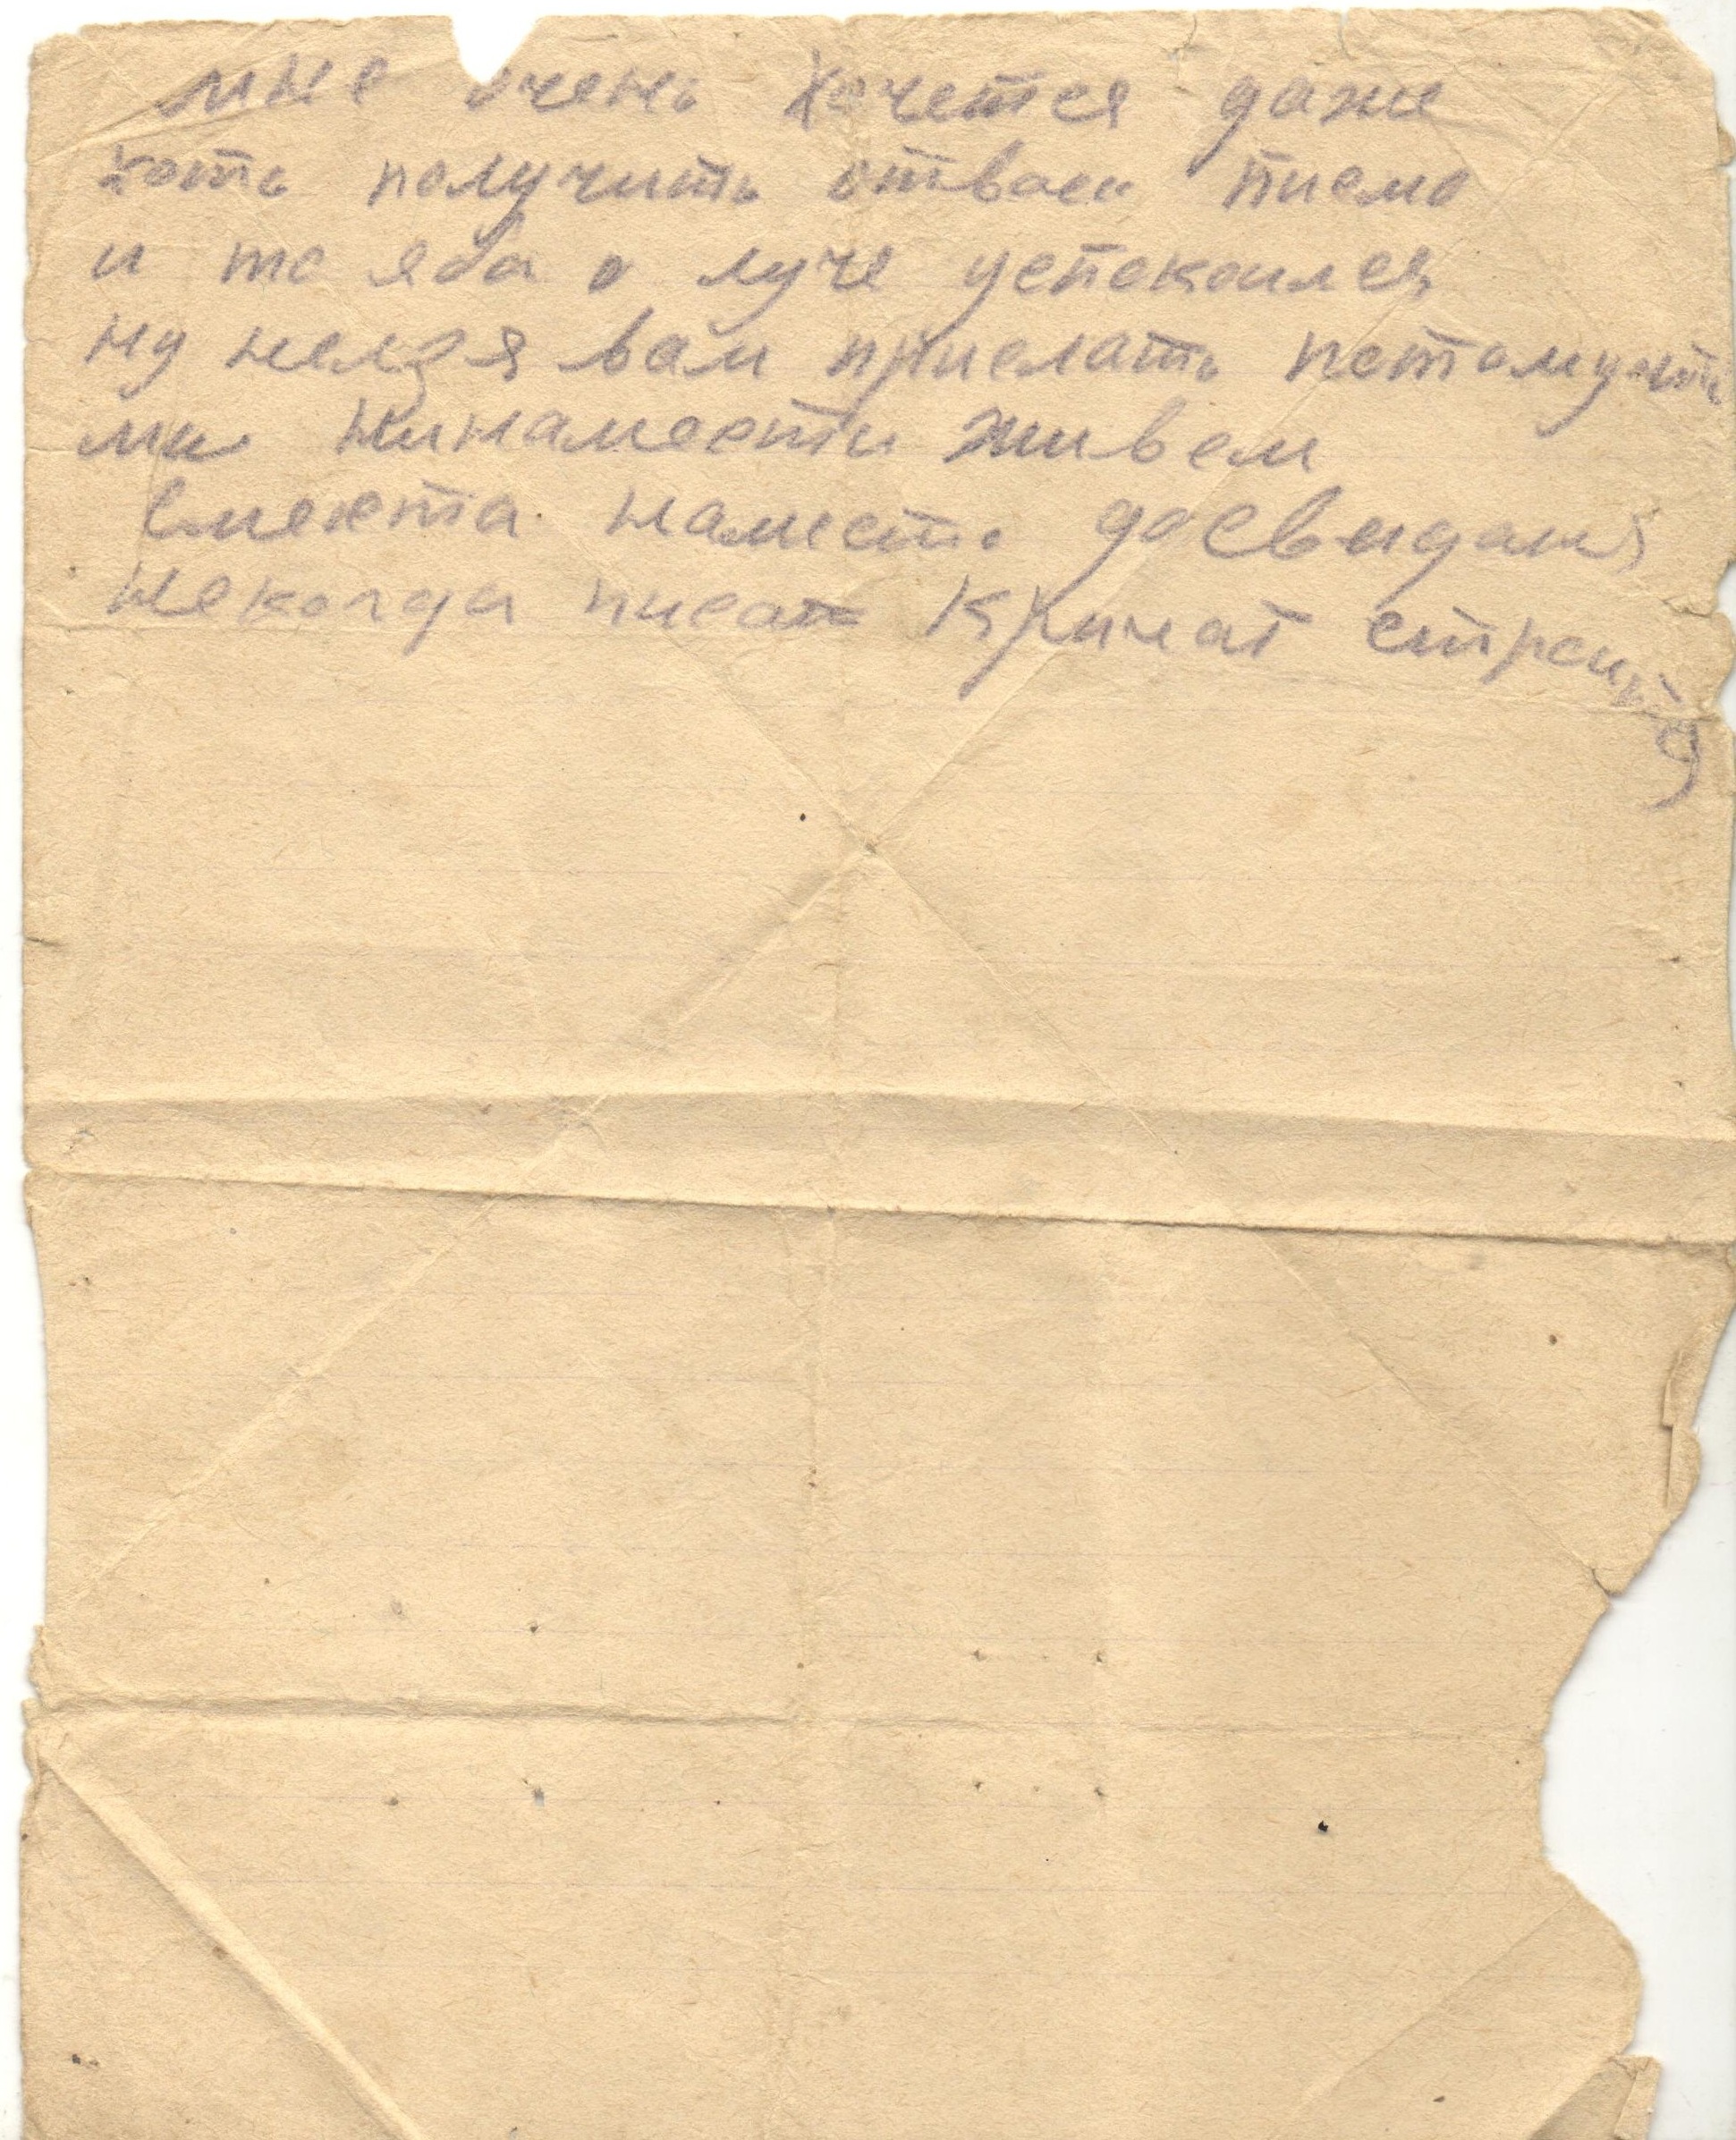 мне очень хочется даже
хоть получить отвас писмо
и то яба луче успокоился
ну нелзя вам прислать потомучто
ми нинамести живем
сместа намест. досвидания
некогда писат Кричат строится